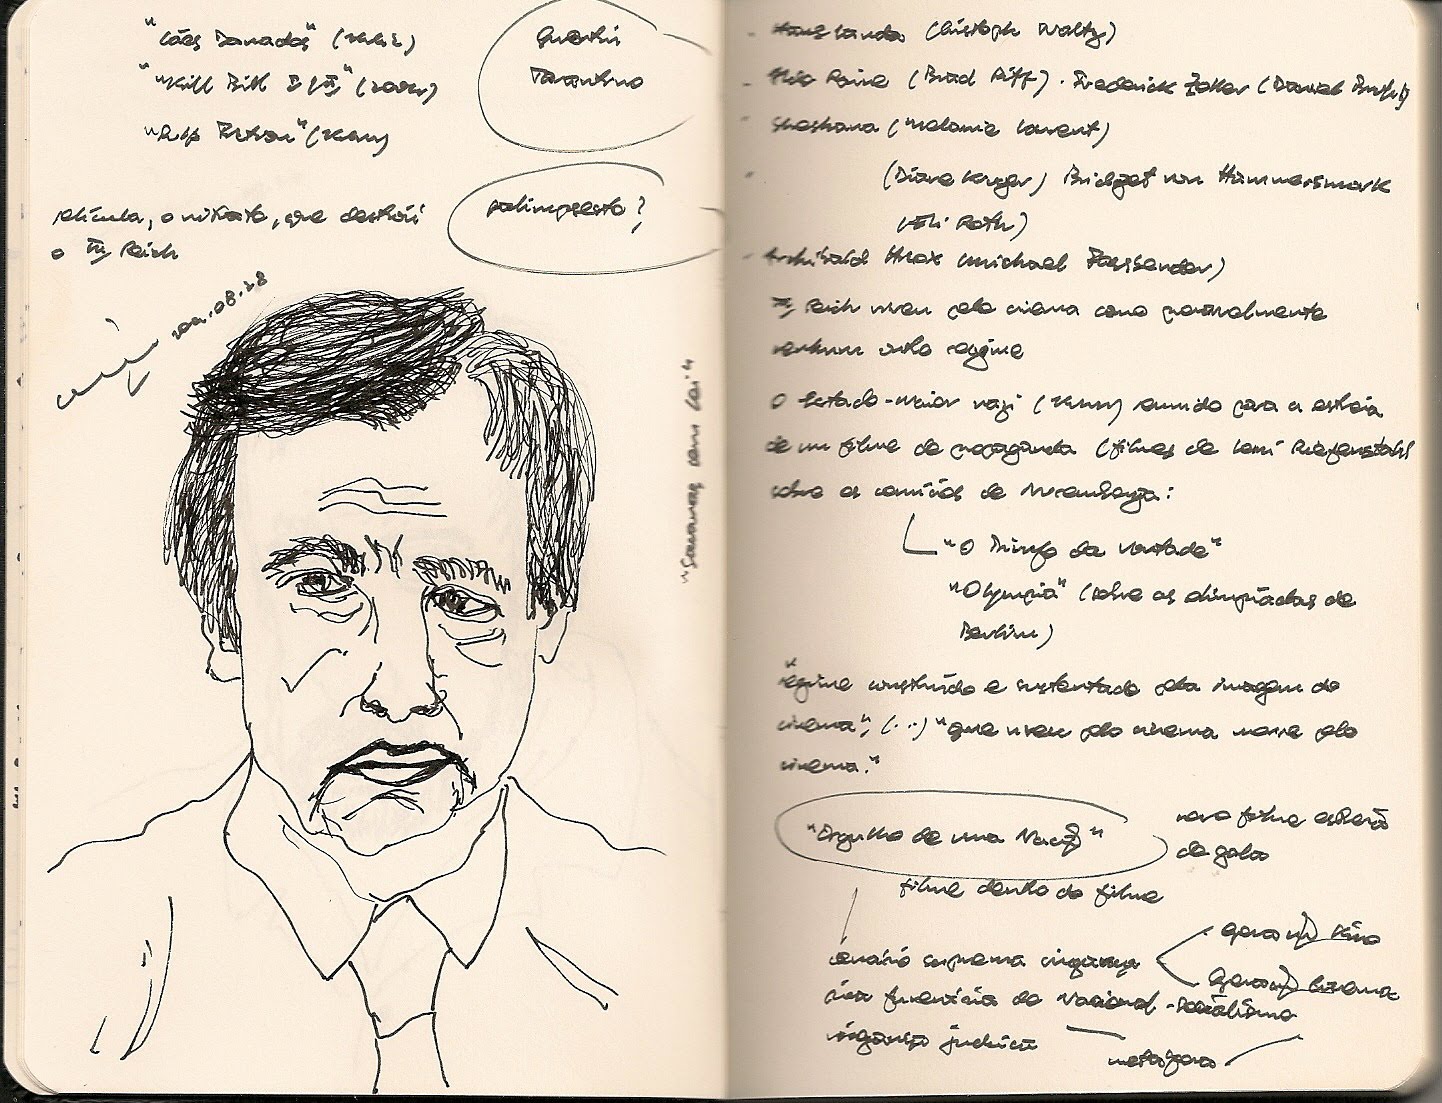 "Cães Danados" (
"Kill Bill I e II" (
"Pulp Fiction" (
Quentin
Tarantino
película, o nitrato, que destrói
o III Reich
palimpsesto?
08.28
"Sacanas sem Lei"
- Hans Landa (Christoph Waltz)
- Aldo Raine (Brad Piff) . Frederick Zoller (Daniel Bruhl)
- Shoshana (Melanie Laurent)
- (Diane Kruger) Bridget von Hammersmark
(Eli Roth)
- Archibald Hicox (Michael Fassbender)
III Reich viveu pelo cinema como provavelmente
nenhum outro regime
O Estado-Maior nazi reunido para a estreia
de um filme de propaganda (filmes de Leni Riefenstahl
sobre os comícios de Nuremberga:
"O Triunfo da Vontade"
"Olympia" (sobre as olimpíadas de
Berlim)
"regime construído e sustentado pela imagem do
cinema", (...) "que viveu pelo cinema morre pelo
cinema."
"Orgulho de uma Nação"
novo filme estreia
de gala
filme dentro do filme
cenário suprema vingança
Kino
Cinema
do Nacional-Socialismo
vingança judaica
metáfora